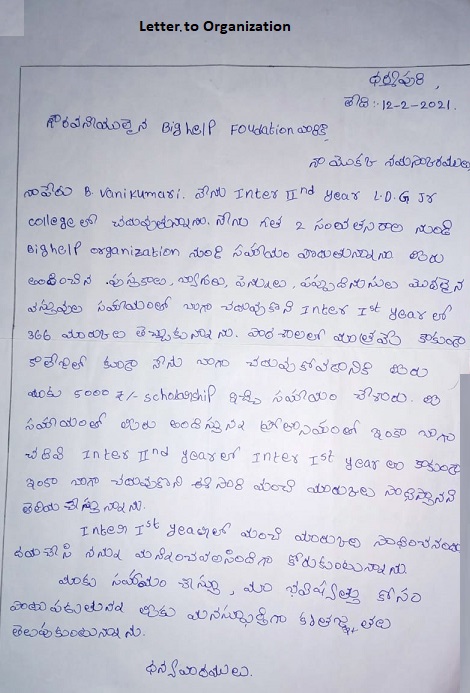 Letter to Organization
ధర్మపురి,
తేది :- 12-2-2021.
గౌరవనీయులైన Big help Foudation వారికి
నా యొక్క నమస్కారములు
నాపేరు B. Vani kumari. నేను Inter IInd year L.D.G Jr
college లో చదువుతున్నాను. నేను గత 2 సంవత్సరాల నుండి
Big help organization నుండి సహాయం పొందుతున్నాను. మీరు
అందించిన పుస్తకాలు, బ్యాగులు, పెన్నులు, పప్పుదినుసులు మొదలైన
వస్తువుల సహాయంతో బాగా చదువుకొని Inter Ist year లో
366 మార్కులు తెచ్చుకున్నాను. పాఠశాలలో మాత్రమే కాకుండా
కాలేజీలో కుడా నేను బాగా చదువుకోవడానికి మీరు
మాకు 5000 ₹/- scholarship ఇచ్చి సహాయం చేశారు. ఈ
సహాయంతో మీరు అందిస్తున్న ప్రోత్సాహంతో ఇంకా బాగా
చదివి Inter IInd year లో Inter Ist year లా కాకుండా
ఇంకా బాగా చదువుకొని ఈ సారి మంచి మార్కులు సాధిస్తానని
తెలియ చేస్తున్నాను.
Inter Ist year లో మంచి మార్కులు సాధించనందుకు
దయచేసి నన్ను మన్నించవలసిందిగా కోరుకుంటున్నాను.
మాకు సహాయం చేస్తూ, మా భవిష్యత్తు కోసం
పాటుపడుతున్న మీకు మనస్ఫూర్తిగా కృతజ్ఞతలు
తెలుపుకుంటున్నాను.
ధన్యవాదములు.